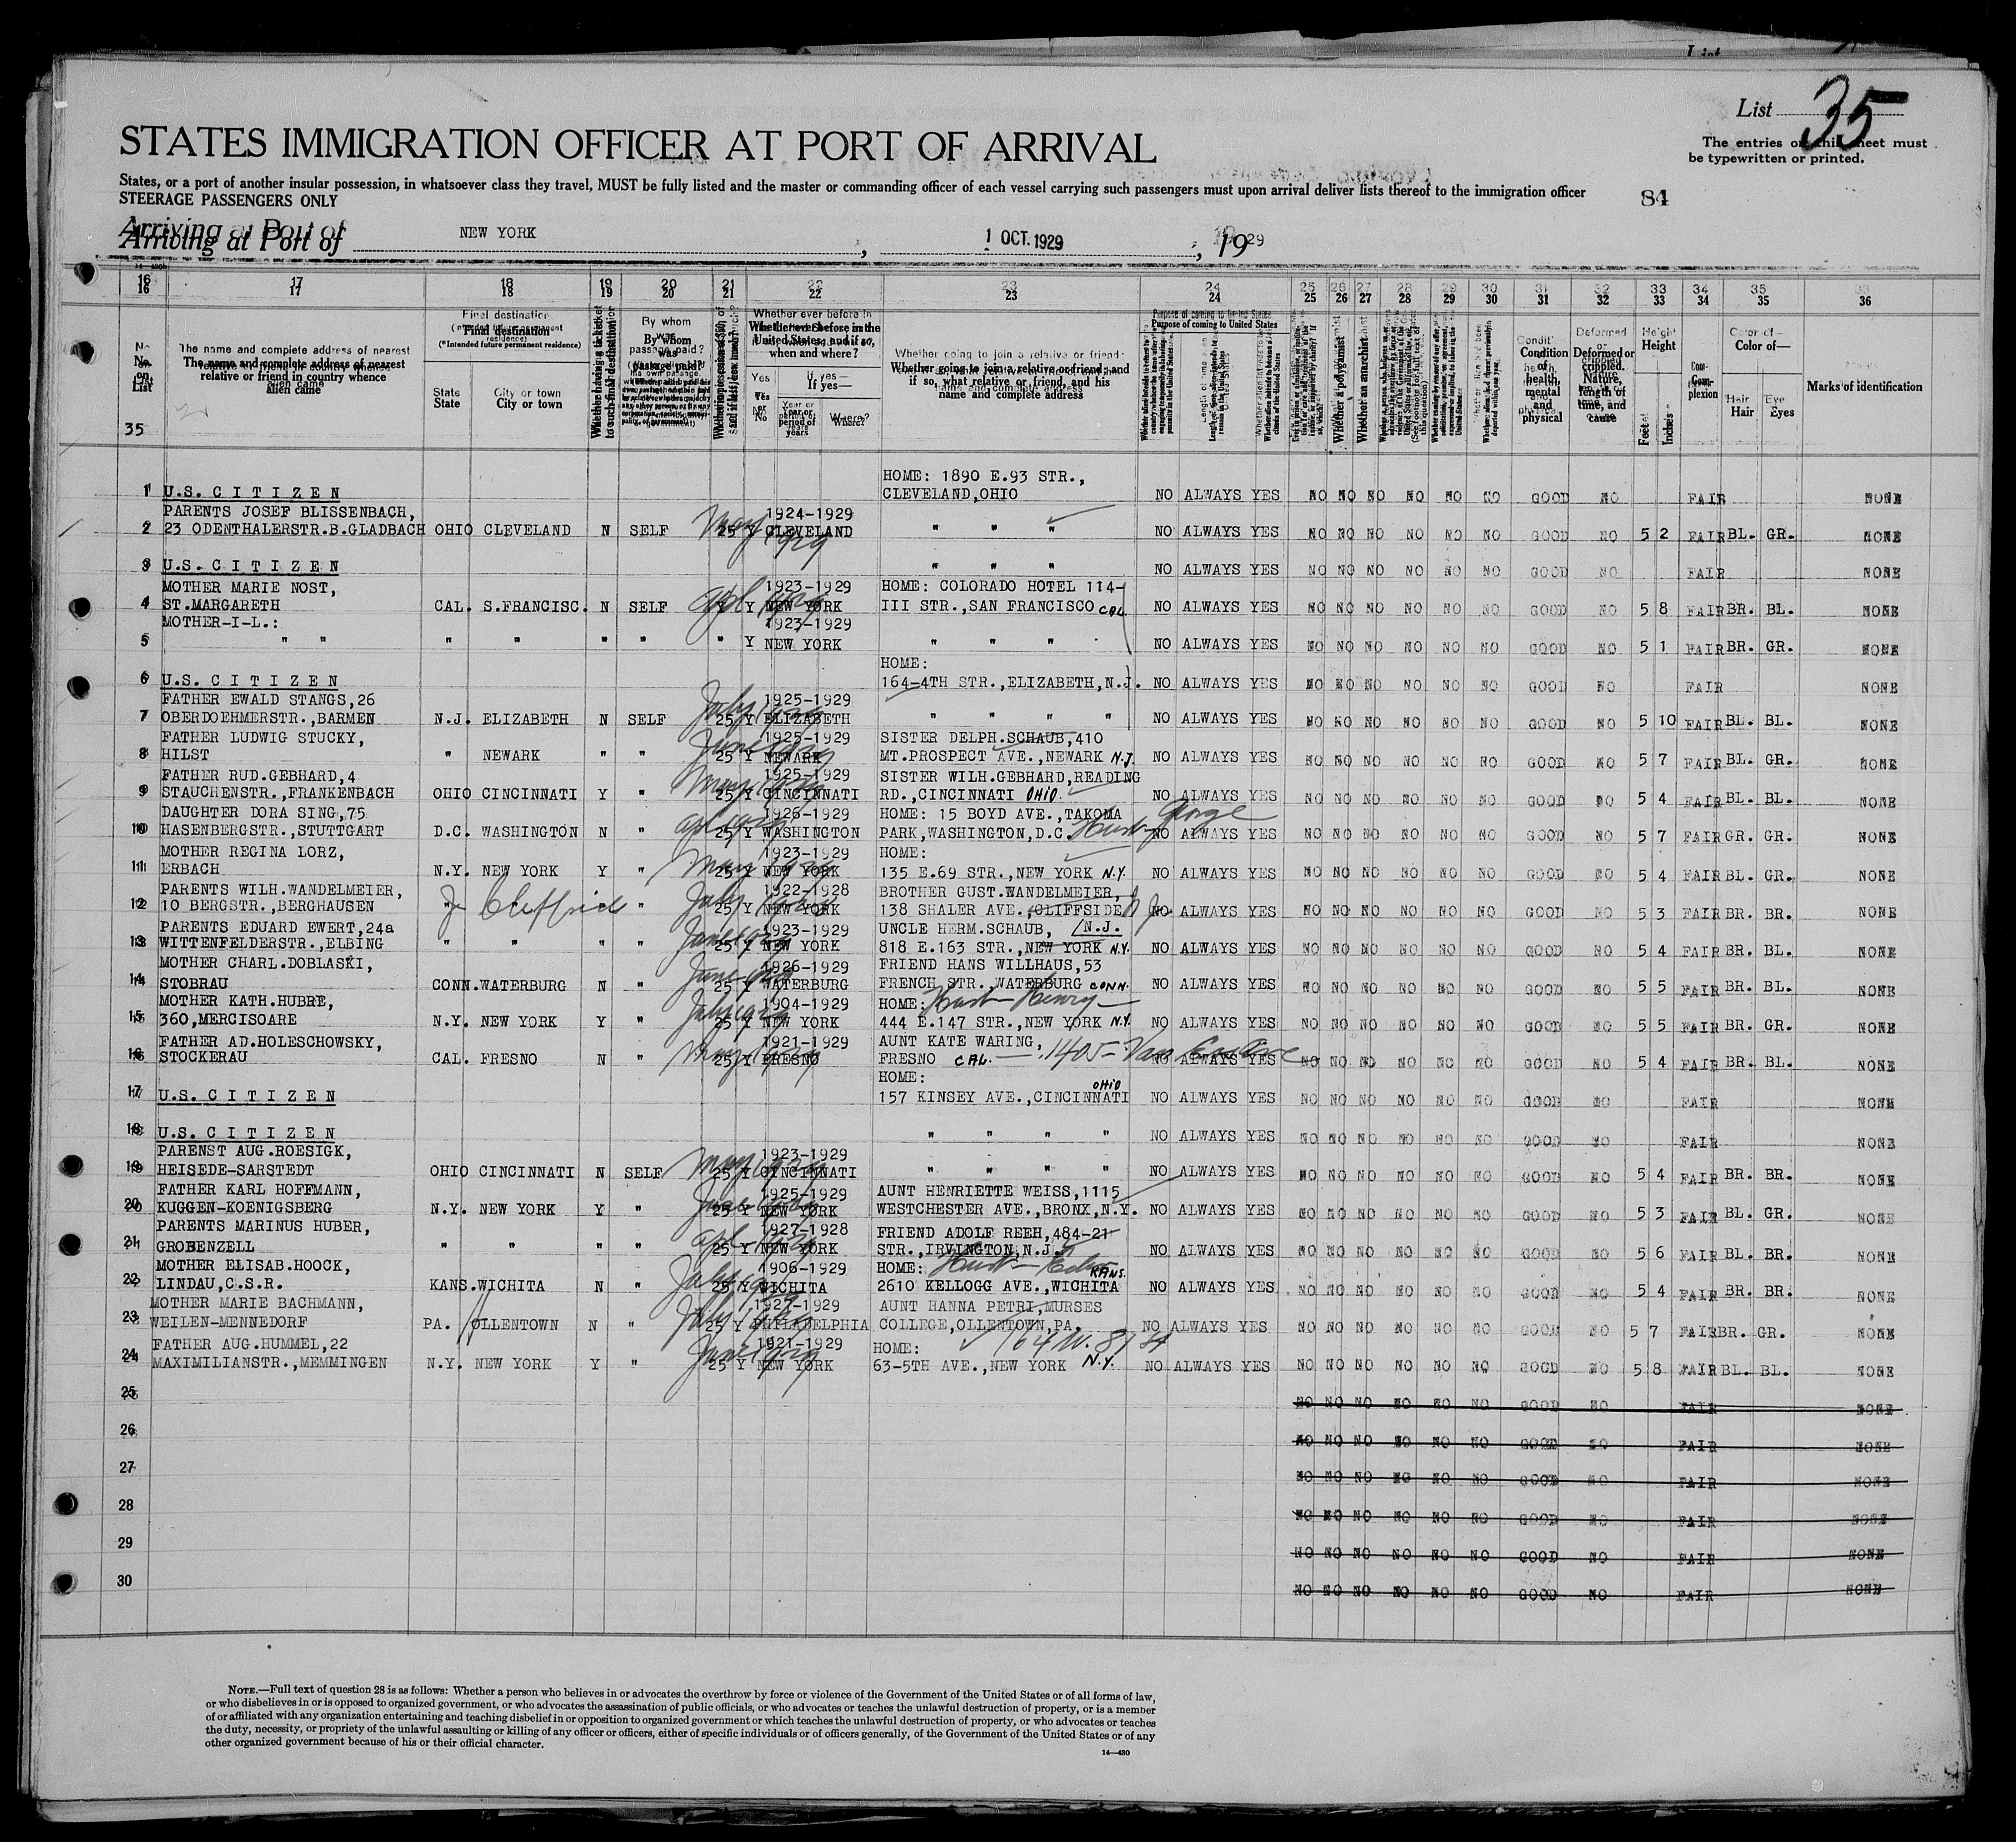 List 35
The entries on this sheet must
be typewritten or printed.
STATES IMMIGRATION OFFICER AT PORT OF ARRIVAL
States, or a port of another insular possession, in whatsoever class they travel, MUST be fully listed and the master or commanding officer of each vessel carrying such passengers must upon arrival deliver lists thereof to the immigration officer
STEERAGE PASSENGERS ONLY
84
Arriving at Port of NEW YORK, 1 OCT. 1929, 19 29
16 17 18 19 20 21 22 23 24 25 26 27 28 29 30 31 32 33 34 35 36
No. on List
35
The name and complete address of nearest relative or friend in country whence alien came
Final destination
(*Intended future permanent residence)
State City or town
Whether having a ticket to such final destination
By whom was passage paid?
Whether ever before in the United States, and if so, when and where?
Yes or No
If yes—
Year or period of years
Where?
Whether going to join a relative or friend; and if so, what relative or friend, and his name and complete address
Purpose of coming to United States
Whether a polygamist
Whether an anarchist
Condition of health, mental and physical
Deformed or crippled. Nature, length of time, and cause
Height
Feet Inches
Complexion
Color of—
Hair Eyes
Marks of identification
HOME: 1890 E.93 STR.,
1 U.S. C I T I Z E N CLEVELAND,OHIO NO ALWAYS YES NO NO NO NO NO NO GOOD NO FAIR NONE
PARENTS JOSEF BLISSENBACH, 1924-1929
2 23 ODENTHALERSTR.B.GLADBACH OHIO CLEVELAND N SELF May 1929 25 Y CLEVELAND " " " NO ALWAYS YES NO NO NO NO NO NO GOOD NO 5 2 FAIR BL. GR. NONE
3 U.S. C I T I Z E N " " " NO ALWAYS YES NO NO NO NO NO NO GOOD NO FAIR NONE
MOTHER MARIE NOST, 1923-1929 HOME: COLORADO HOTEL 114-
4 ST.MARGARETH CAL. S.FRANCISC. N SELF Apl 1929 Y NEW YORK III STR.,SAN FRANCISCO CAL NO ALWAYS YES NO NO NO NO NO NO GOOD NO 5 8 FAIR BR. BL. NONE
MOTHER-I-L.: 1923-1929
5 " " " " " " " Y NEW YORK " " " NO ALWAYS YES NO NO NO NO NO NO GOOD NO 5 1 FAIR BR. GR. NONE
HOME:
6 U.S. C I T I Z E N 164-4TH STR.,ELIZABETH,N.J. NO ALWAYS YES NO NO NO NO NO NO GOOD NO FAIR NONE
FATHER EWALD STANGS,26 1925-1929
7 OBERDOEHMERSTR.,BARMEN N.J. ELIZABETH N SELF July 1929 25 Y ELIZABETH " " " " NO ALWAYS YES NO NO NO NO NO NO GOOD NO 5 10 FAIR BL. BL. NONE
FATHER LUDWIG STUCKY, 1925-1929 SISTER DELPH.SCHAUB,410
8 HILST " NEWARK " " June 1929 25 Y NEWARK MT.PROSPECT AVE.,NEWARK N.J. NO ALWAYS YES NO NO NO NO NO NO GOOD NO 5 7 FAIR BL. GR. NONE
FATHER RUD.GEBHARD,4 1925-1929 SISTER WILH.GEBHARD,READING
9 STAUCHENSTR.,FRANKENBACH OHIO CINCINNATI Y " May 1929 25 Y CINCINNATI RD.,CINCINNATI OHIO NO ALWAYS YES NO NO NO NO NO NO GOOD NO 5 4 FAIR BL. BL. NONE
DAUGHTER DORA SING,75 1926-1929 HOME: 15 BOYD AVE.,TAKOMA
10 HASENBERGSTR.,STUTTGART D.C. WASHINGTON N " Apl 1929 25 Y WASHINGTON PARK,WASHINGTON,D.C. Husb George NO ALWAYS YES NO NO NO NO NO NO GOOD NO 5 7 FAIR GR. GR. NONE
MOTHER REGINA LORZ, 1923-1929 HOME:
11 ERBACH N.Y. NEW YORK Y " May 1929 25 Y NEW YORK 135 E.69 STR.,NEW YORK N.Y. NO ALWAYS YES NO NO NO NO NO NO GOOD NO 5 4 FAIR BL. GR. NONE
PARENTS WILH.WANDELMEIER, 1922-1928 BROTHER GUST.WANDELMEIER,
12 10 BERGSTR.,BERGHAUSEN " Cliffside " July 25 Y NEW YORK 138 SHALER AVE.,CLIFFSIDE N J NO ALWAYS YES NO NO NO NO NO NO GOOD NO 5 3 FAIR BR. BR. NONE
PARENTS EDUARD EWERT,24a 1923-1929 UNCLE HERM.SCHAUB, /N.J.
13 WITTENFELDERSTR.,ELBING " " " " June 1929 25 Y NEW YORK 818 E.163 STR.,NEW YORK N.Y. NO ALWAYS YES NO NO NO NO NO NO GOOD NO 5 4 FAIR BR. BL. NONE
MOTHER CHARL.DOBLASKI, 1926-1929 FRIEND HANS WILLHAUS,53
14 STOBRAU CONN.WATERBURG N " June 1929 25 Y WATERBURG FRENCH STR.,WATERBURG CONN. NO ALWAYS YES NO NO NO NO NO NO GOOD NO 5 5 FAIR BR. BL. NONE
MOTHER KATH.HUBRE, 1904-1929 HOME: Husb Henry
15 360,MERCISOARE N.Y. NEW YORK Y " July 1929 25 Y NEW YORK 444 E.147 STR.,NEW YORK N.Y. NO ALWAYS YES NO NO NO NO NO NO GOOD NO 5 5 FAIR BR. GR. NONE
FATHER AD.HOLESCHOWSKY, 1921-1929 AUNT KATE WARING,
16 STOCKERAU CAL. FRESNO N " May 1929 25 Y FRESNO FRESNO CAL. — 1405 - Van NO ALWAYS YES NO NO NO NO NO NO GOOD NO 5 4 FAIR BR. BL. NONE
HOME:
17 U.S. C I T I Z E N 157 KINSEY AVE.,CINCINNATI OHIO NO ALWAYS YES NO NO NO NO NO NO GOOD NO FAIR NONE
18 U.S. C I T I Z E N " " " " NO ALWAYS YES NO NO NO NO NO NO GOOD NO FAIR NONE
PARENST AUG.ROESIGK, 1923-1929
19 HEISEDE-SARSTEDT OHIO CINCINNATI N SELF May 1929 25 Y CINCINNATI " " " " NO ALWAYS YES NO NO NO NO NO NO GOOD NO 5 4 FAIR BR. BR. NONE
FATHER KARL HOFFMANN, 1925-1929 AUNT HENRIETTE WEISS,1115
20 KUGGEN-KOENIGSBERG N.Y. NEW YORK Y " June 25 Y NEW YORK WESTCHESTER AVE.,BRONX,N.Y. NO ALWAYS YES NO NO NO NO NO NO GOOD NO 5 3 FAIR BL. GR. NONE
PARENTS MARINUS HUBER, 1927-1928 FRIEND ADOLF REEH,484-21
21 GROBENZELL " " " " Apl 25 Y NEW YORK STR.,IRVINGTON,N.J. NO ALWAYS YES NO NO NO NO NO NO GOOD NO 5 6 FAIR BL. BR. NONE
MOTHER ELISAB.HOOCK, 1906-1929 HOME: Husb —
22 LINDAU,C.S.R. KANS.WICHITA N " July 25 Y WICHITA 2610 KELLOGG AVE.,WICHITA KANS. NO ALWAYS YES NO NO NO NO NO NO GOOD NO 5 4 FAIR BR. BR. NONE
MOTHER MARIE BACHMANN, 1927-1929 AUNT HANNA PETRI,MURSES
23 WEILEN-MENNEDORF PA. OLLENTOWN N " July 1929 25 Y PHILADELPHIA COLLEGE,OLLENTOWN,PA. NO ALWAYS YES NO NO NO NO NO NO GOOD NO 5 7 FAIR BR. GR. NONE
FATHER AUG.HUMMEL,22 1921-1929 HOME: 164 W. 87 St
24 MAXIMILIANSTR.,MEMMINGEN N.Y. NEW YORK Y " June 1929 25 Y NEW YORK 63-5TH AVE.,NEW YORK N.Y. NO ALWAYS YES NO NO NO NO NO NO GOOD NO 5 8 FAIR BL. BL. NONE
25 NO NO NO NO NO NO GOOD NO FAIR NONE
26 NO NO NO NO NO NO GOOD NO FAIR NONE
27 NO NO NO NO NO NO GOOD NO FAIR NONE
28 NO NO NO NO NO NO GOOD NO FAIR NONE
29 NO NO NO NO NO NO GOOD NO FAIR NONE
30 NO NO NO NO NO NO GOOD NO FAIR NONE
NOTE.—Full text of question 28 is as follows: Whether a person who believes in or advocates the overthrow by force or violence of the Government of the United States or of all forms of law,
or who disbelieves in or is opposed to organized government, or who advocates the assassination of public officials, or who advocates or teaches the unlawful destruction of property, or is a member
of or affiliated with any organization entertaining and teaching disbelief in or opposition to organized government or which teaches the unlawful destruction of property, or who advocates or teaches
the duty, necessity, or propriety of the unlawful assaulting or killing of any officer or officers, either of specific individuals or of officers generally, of the Government of the United States or of any
other organized government because of his or their official character.
14—430